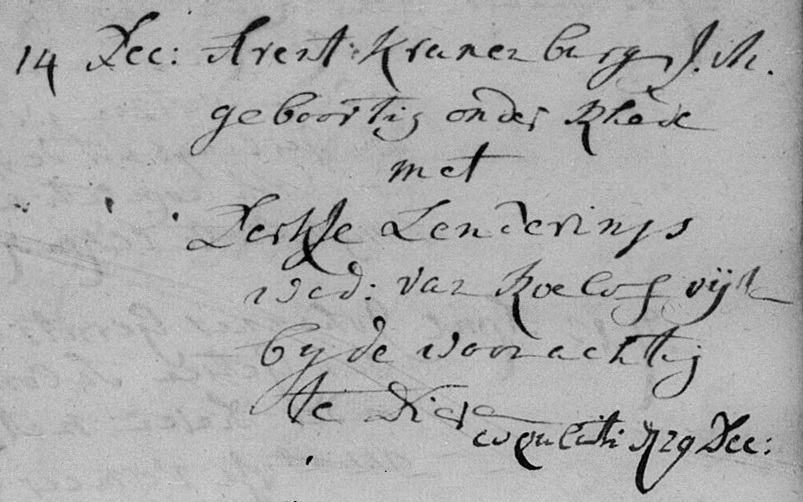 14 Dec: Arent Kranenburg J.M.
geboortig onder Rhede
met
Derkje Lenderings
wed: van Roelof
byde woonachtig
te Dieren
copulati 29 Dec: